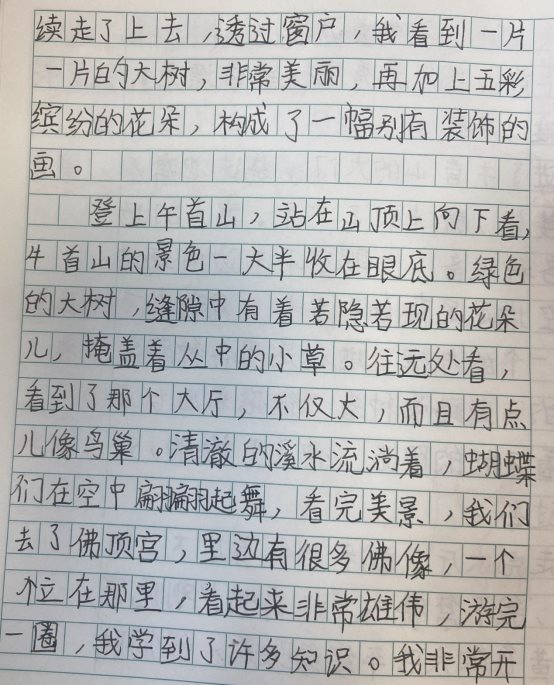 续走了上去，透过窗户，我看到一片
一片的大树，非常美丽，再加上五彩
缤纷的花朵，构成了一幅别有装饰的
画。
登上午首山，站在山顶上向下看，
牛首山的景色一大半收在眼底。绿色
的大树，缝隙中有着若隐若现的花朵
儿，掩盖着丛中的小草。往远处看，
看到了那个大厅，不仅大，而且有点
儿像鸟巢。清澈的溪水流淌着，蝴蝶
们在空中翩翩起舞，看完美景，我们
去了佛顶宫，里边有很多佛像，一个
个立在那里，看起来非常雄伟，游完
一圈，我学到了许多知识。我非常开